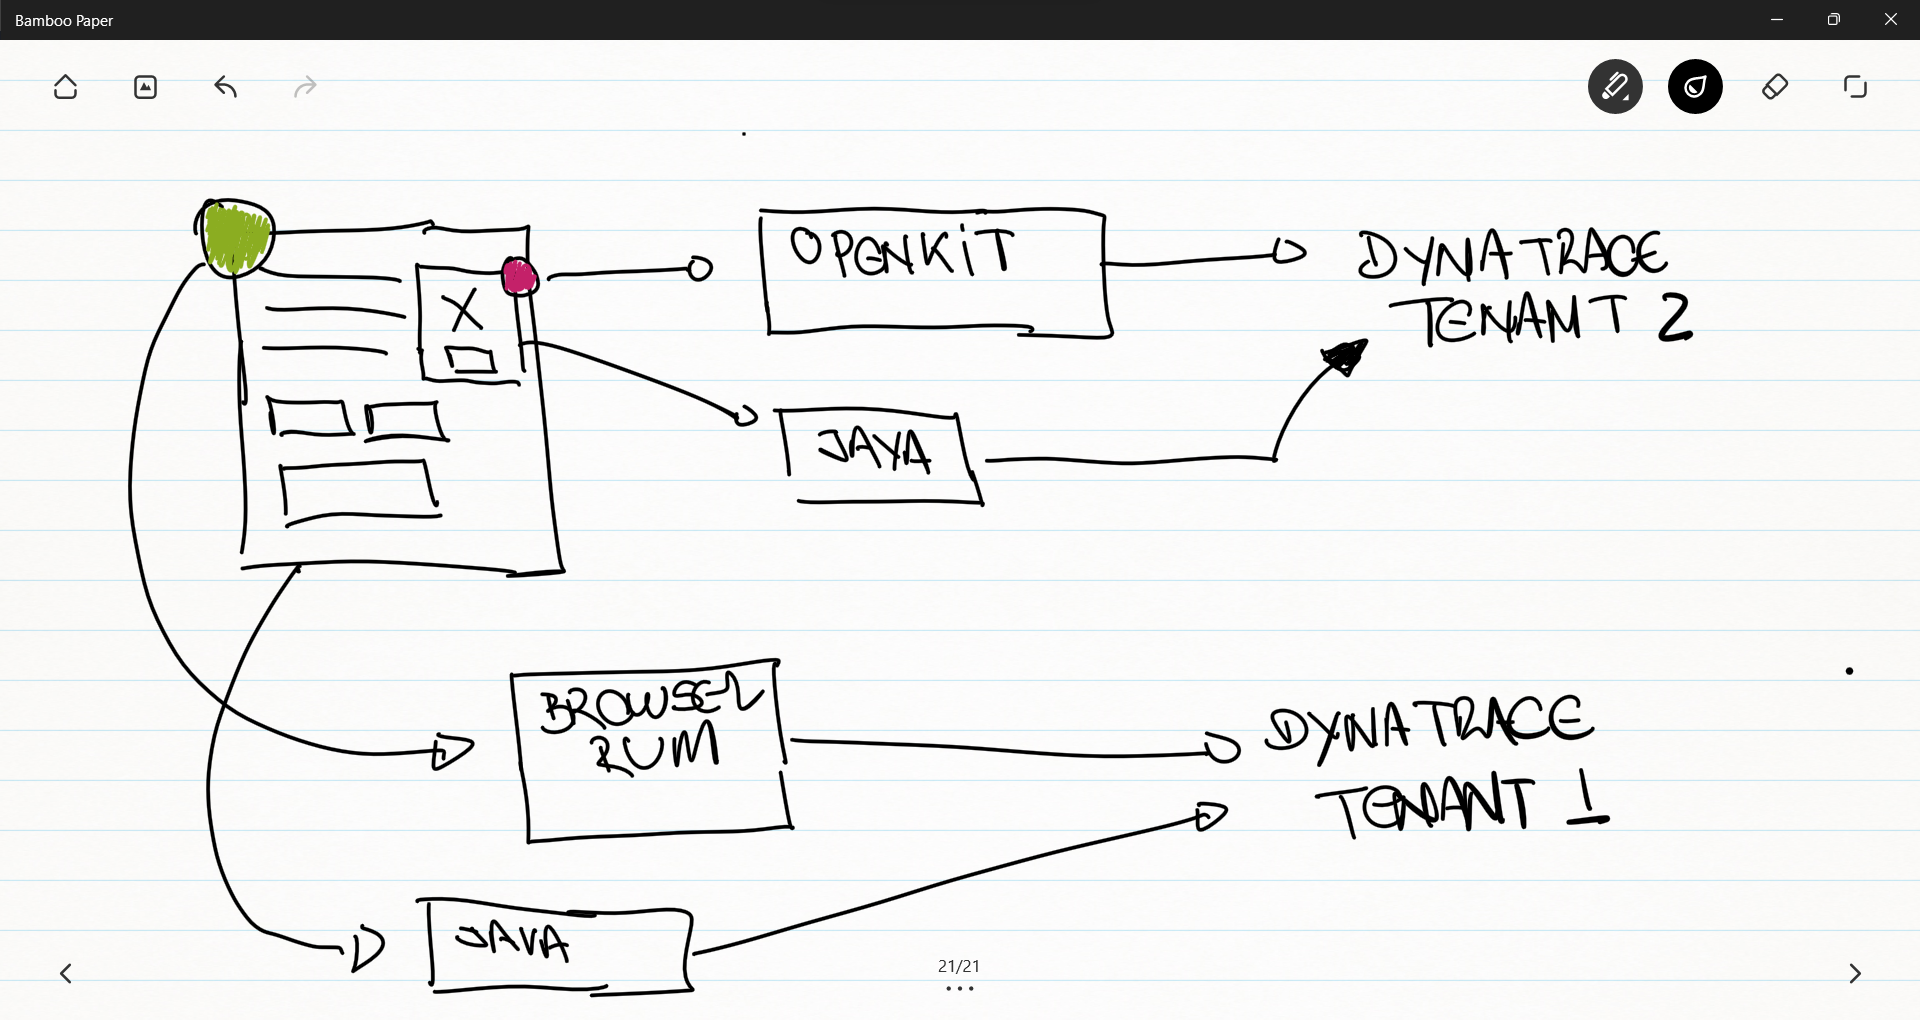 Bamboo Paper
OPENKIT
DYNATRACE
TENANT 2
X
JAVA
BROWSER
RUM
DYNATRACE
TENANT 1
JAVA
21/21